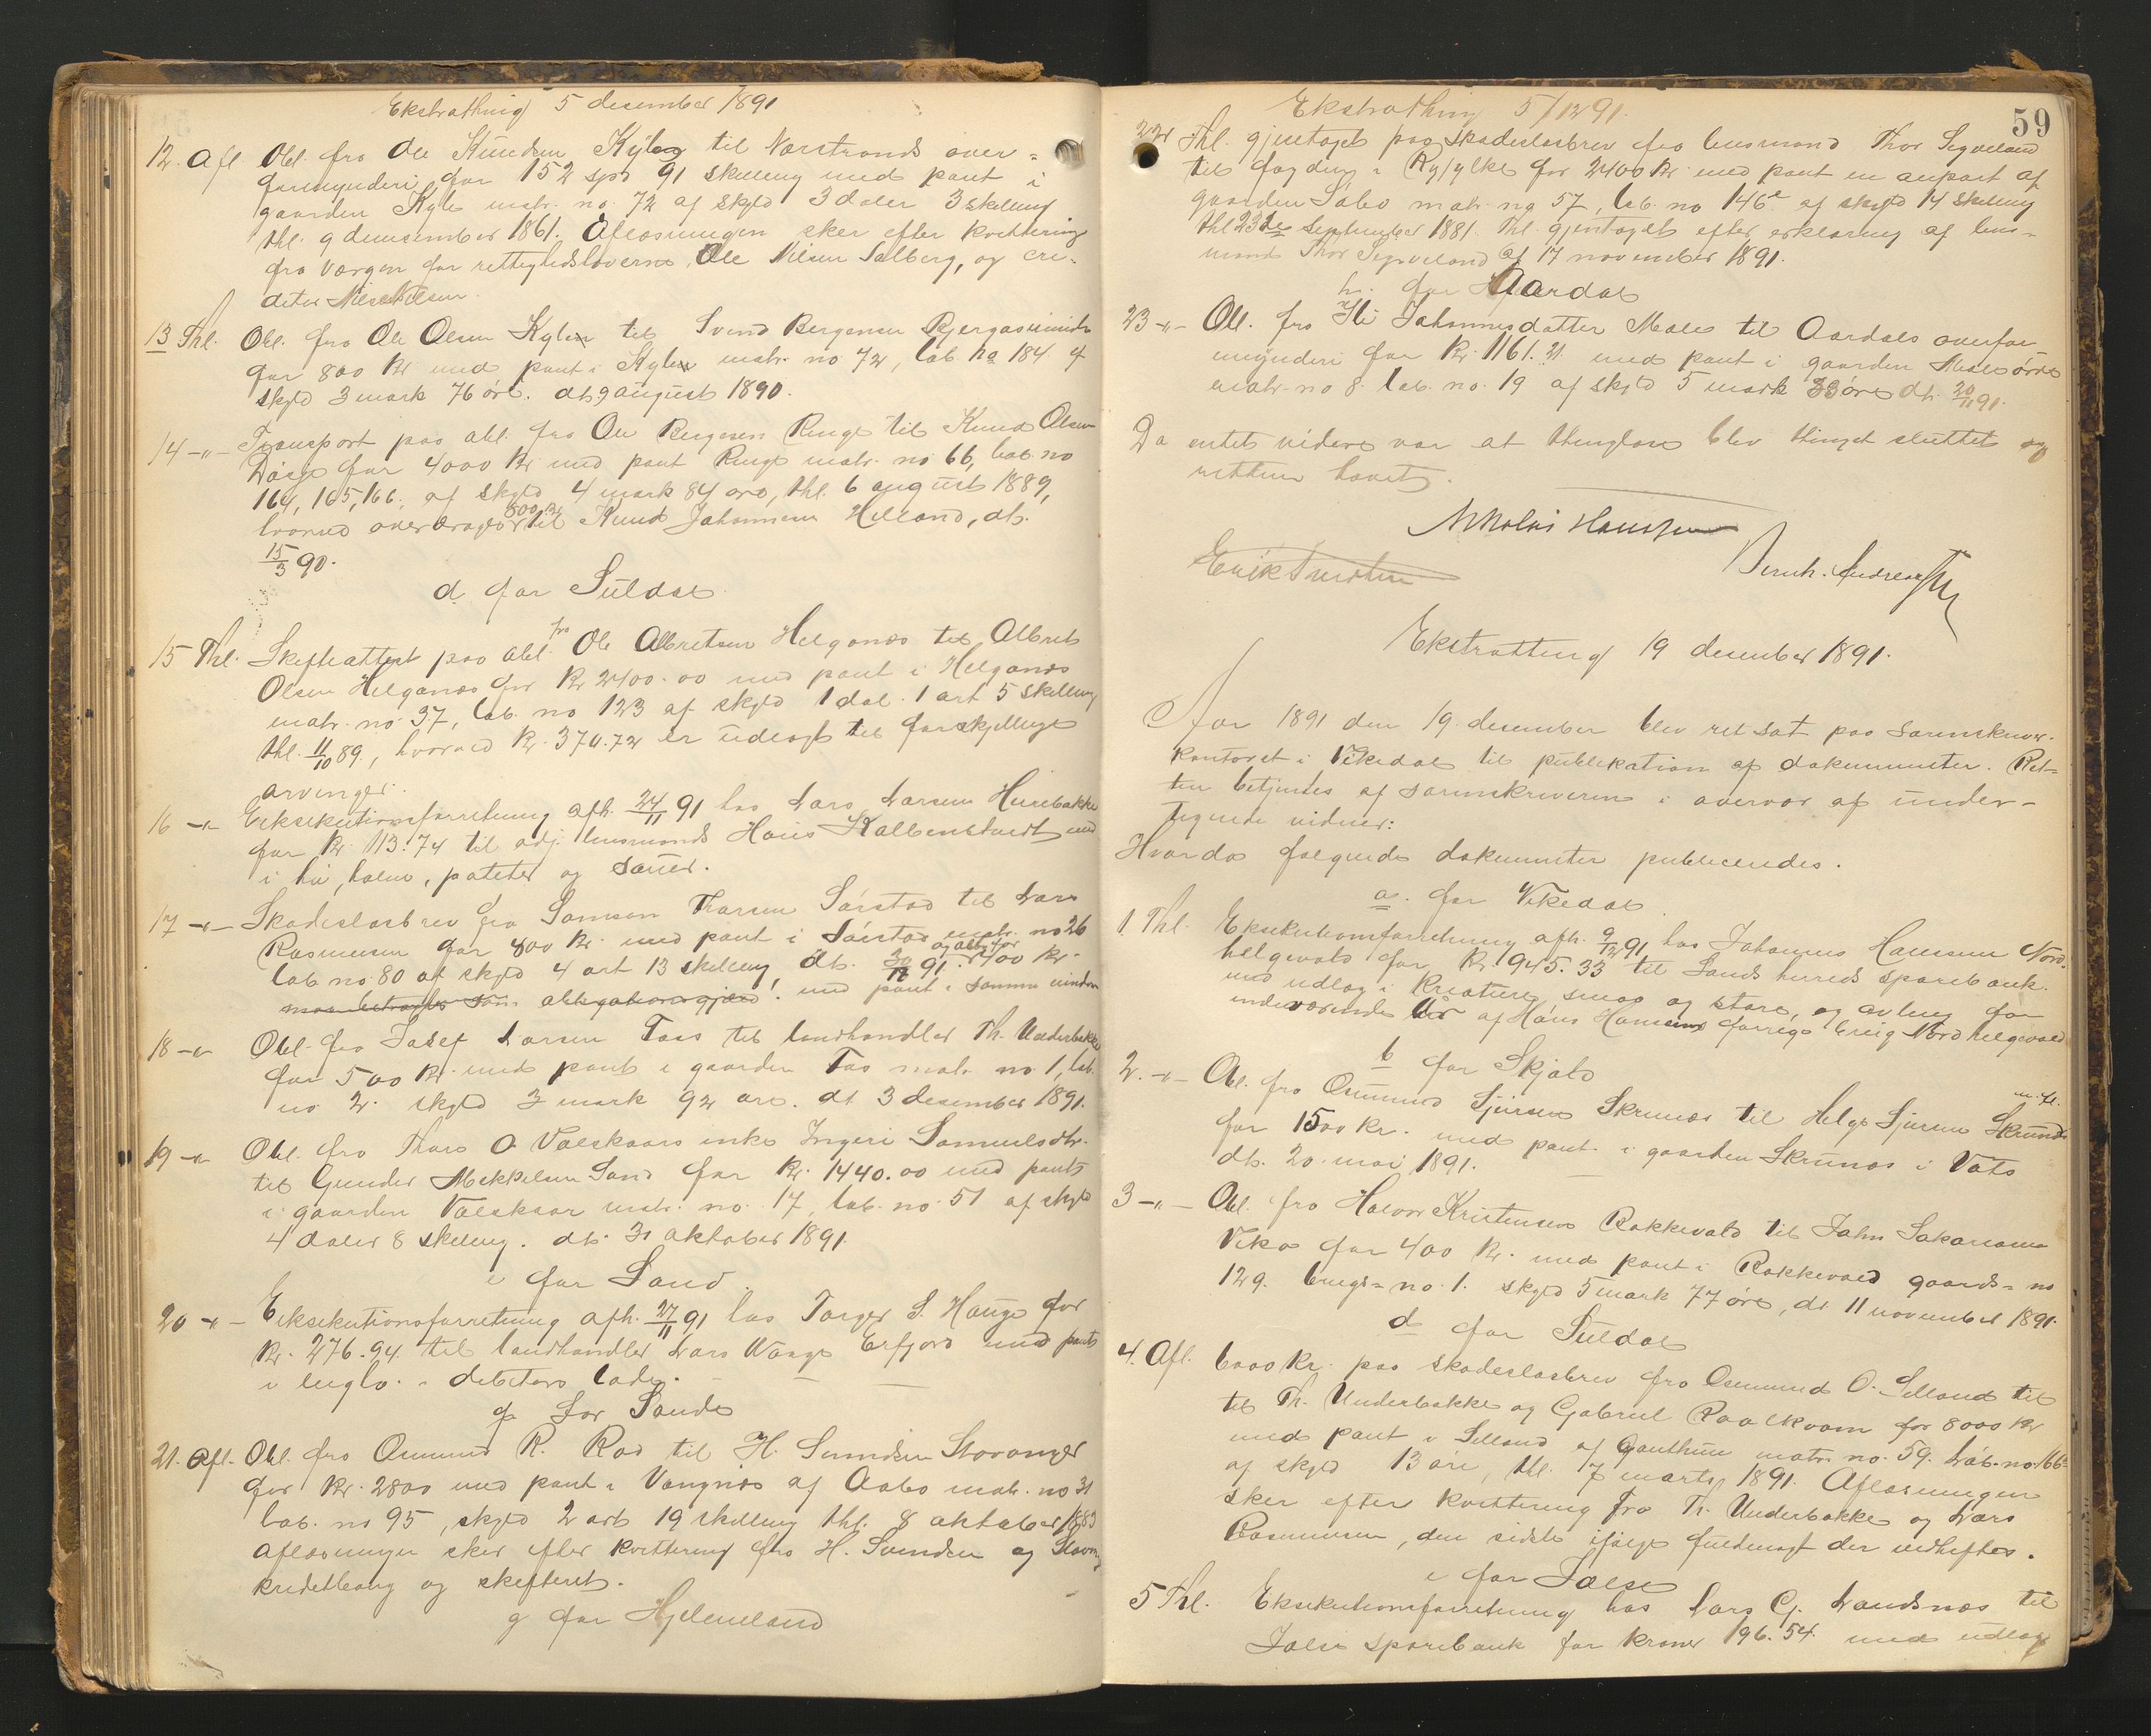 Ekstrathing 5 desember 1891
12. Afl Obl. fra Ole Knudsen Kyle til Nærstrands over=
formynderi for 152 spd 91 skilling med pant i
gaarden Kyle matr. no. 72 af skyld 3 daler 3 skilling
thl. 9 desember 1861. Aflæsningen sker efter kvittering
fra værgen for rettighedshaverne, Ole Nilsen Salberg, og cre-
ditor Nils Nilsen.
13 Thl. Obl. fra Ole Olsen Kyle til Svend Bergensen
for 800 kr med pant i Kyle matr. no 72, løb. no 184 af
skyld 3 mark 76 øre. dt. 9 august 1890.
14 -"- Transport paa obl. fra Ole Bergesen Ringe til Knud Olsen
for 4000 kr med pant Ringe matr. no 66, løb. no
164, 165, 166, af skyld 4 mark 84 øre, thl. 6 august 1889,
hvorved overdrages 800 kr til Knud Johannesen Helland, dt.
15/3 90.
d. for Suldal
15 Thl. Skifteattest paa obl. fra Ole Albretsen Helganes til Albret
Olsen Helganes for kr 2400.00 med pant i Helganes
matr. no. 37, løb. no 123 af skyld 1 dal. 1 ort 5 skilling
thl. 11/10 89, hvorved kr. 370.72 er udlagt til forskjellige
arvinger.
16 -"- Eksekutionsforretning afh. 24/11 91 hos Lars Larsen
for kr. 113.74 til adj. lensmand Hans Kolbenstvedt med
i hø, halm, poteter og sauer.
17 -"- Skadesløsbrev fra Samson Thorsen Sørstad til Lars
Rasmussen for 400 kr. med pant i Sørstad matr. no 26
løb no. 80 af skyld 4 ort 13 skilling, dt. 91. og obl. for 400 kr.
med pant i samme eiendom
18 -"- Obl. fra Josef Larsen Foss til landhandler Th. Underbakke
for 500 kr. med pant i gaarden Fos matr. no. 1, løb.
no 2. skyld 3 mark 92 øre. dt 3 desember 1891.
19 -"- Obl. fra Thore O. Valskaars enke Ingeri Samuelsdtr.
til Gunder Mekkelsen Sand for kr. 1440.00 med pant
i gaarden Valskaar matr. no. 17, løb. no. 51 af skyld
4 daler 8 skilling. dt. 31 oktober 1891.
e for Sand.
20 -"- Eksekutionsforretning afh. 27/11 91 hos Torger S. Hauge for
kr. 276.94 til landhandler Lars Vaage Erfjord med pant
i debitors lade.
f for Sande
21. Afl. Obl. fra Osmund R. Rød til H. Svendsen Stavanger
for kr. 2800 med pant i Vangnes af Aabø matr. no 31
løb. no 95, skyld 2 ort 19 skilling thl. 8 oktober 1883
aflæsningen sker efter kvittering fra H. Svendsen og Stavng
kreditbank og skifteret.
g for Hjelmeland
Ekstrathing 5/12 91.
59
22 Thl. gjentaget paa skadesløsbrev fra lensmand Thor Segveland
til fogden i Ryfylke for 2400 kr. med pant en anpart af
gaarden Sæbø matr. no 57, løb. no 146e af skyld 14 skilling
thl. 23de september 1881. Thl. gjentaget efter erklæring af lens=
mand Thor Segveland af 17 november 1891.
h. for Aardal
23 -"- Obl. fra Ili Johannesdatter Mæle til Aardals overfor
mynderi for kr. 1161.21 med pant i gaarden
matr. no 8. løb. no. 19 af skyld 5 mark 33 øre dt. 20/11 91.
Da intet videre var at thinglæse blev thinget sluttet og
retten hævet.
Nikolai Hanssen
Erik Bernh. Andreas
Ekstratting 19 desember 1891.
Aar 1891 den 19. desember blev ret sat paa sorenskriver-
kontoret i Vikedal til publikation af dokumenter. Ret-
ten betjentes af sorenskriveren i overvær af under-
tegnede vidner:
Hvorda følgende dokumenter publiceredes.
a. for Vikedal
1. Thl. Eksekutionsforretning afh. 9/12 91 hos Johannes Hanssen Nord-
helgevold for kr. 1945.33 til Sands herreds sparebank.
med udlag i kreature smaa og store, og avling for
indeværende aar af Hans Hansens forrige brug Nordhelgevold
b for Skjold
2. -"- Obl. fra Osmund Sjursen Skrunes til Helge Sjursen Skrunes m. fl.
for 1500 kr. med pant i gaarden Skrunes i Vats
dt. 20. mai 1891.
3 -"- Obl. fra Halvor Kristensen Rakkevold til John Sakariasen
Vika for 400 kr. med pant i Rakkevold gaards=no
129. brugs=no 1. skyld 5 mark 77 øre, dt 11 november 1891.
d for Suldal
4. Afl. 6000 kr. paa skadesløsbrev fra Osmund O. Selland til
til Th. Underbakke og Gabriel Raalkvam for 8000 kr
med pant i Selland af Gauthun matr. no. 59. løb. no. 166
af skyld 13 øre, thl. 7 marts 1891. Aflæsningen
sker efter kvittering fra Th. Underbakke og Lars
Rasmussen, den sidste ifølge fuldmagt der vedheftes.
e for Jelse
5 Thl. Eksekutionsforretning hos Lars G. Landsnes til
Jelse sparebank for kroner 196.54 med udlæg